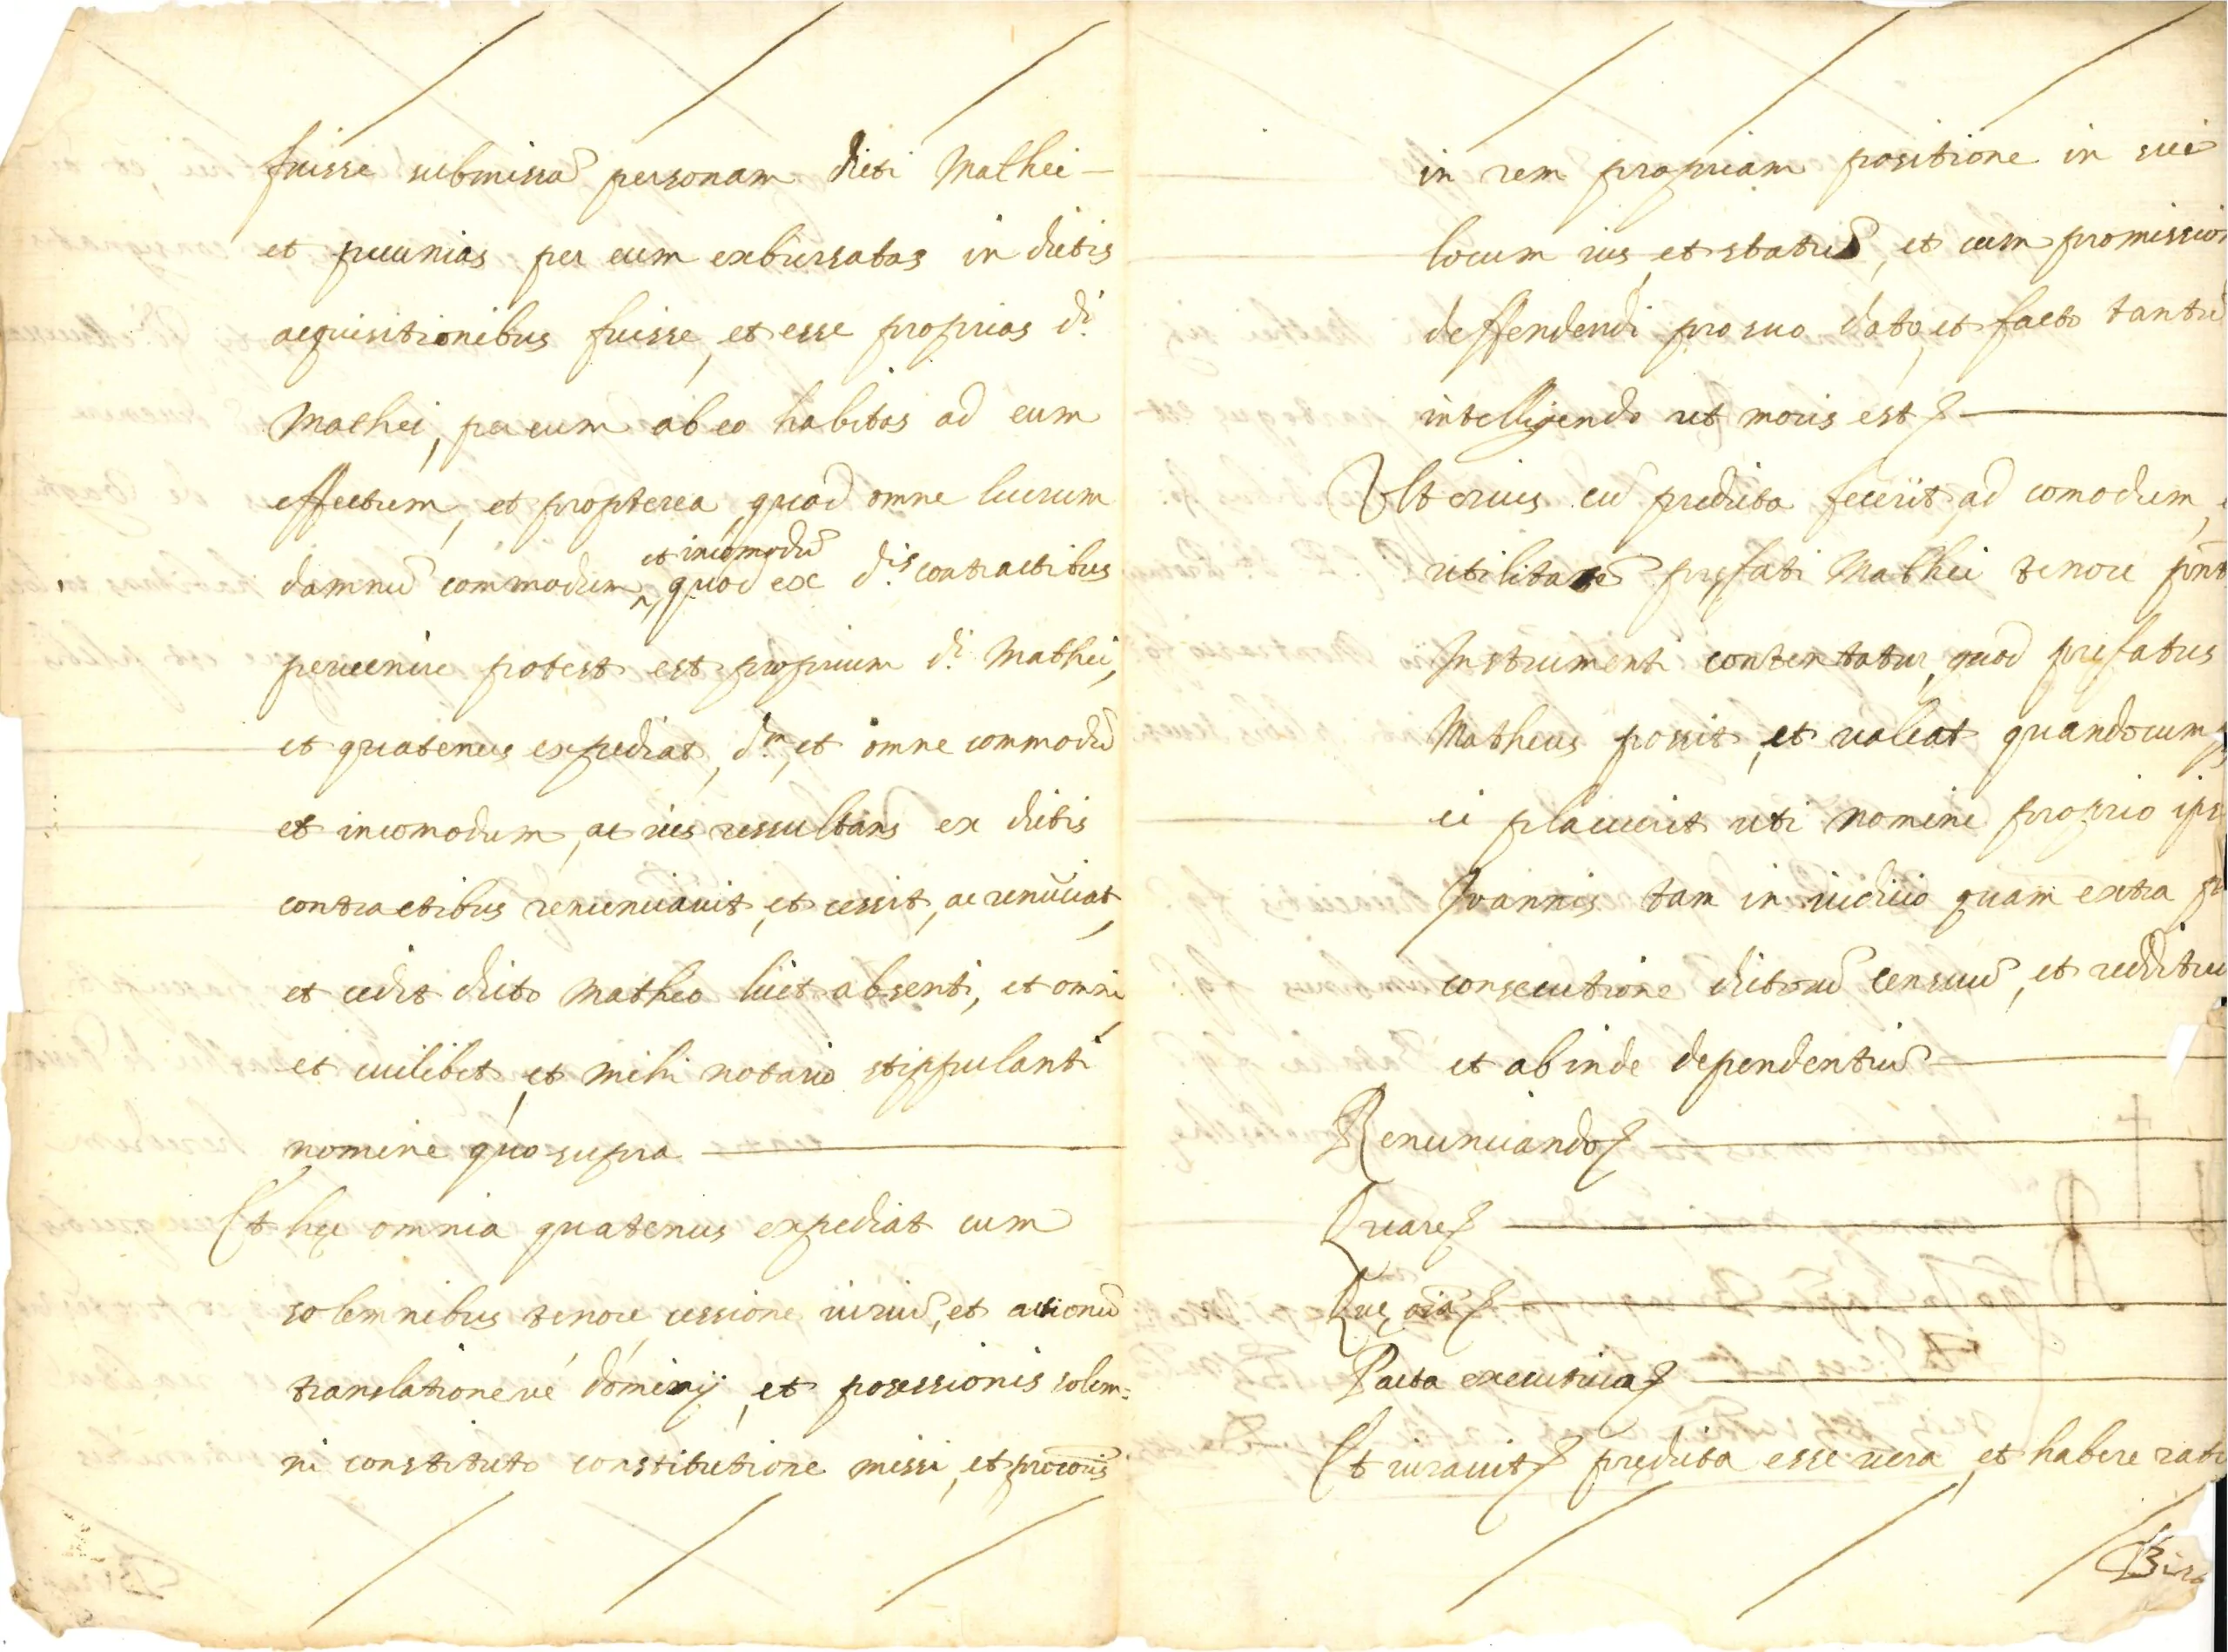 fuisse submissã personam dicti Mathei –
et pecunias per eum exbursatas in dictis
acquisitionibus fuisse, et esse proprias d.ⁱ
Mathei, per eum ab eo habitas ad eum
effectum, et propterea quod omne lucrum
damnũ commodum et incomodũ, quod ex d.ⁱˢ contractibus
pervenire potest est proprium d.ⁱ Mathei,
et quatenus expediat, d.ᵐ, et omne commodũ
et incomodum, ac ius ressultans ex dictis
contractibus renunciavit, et cessit, ac renũciat,
et cedit dicto Matheo licet absenti, et omni,
et cuilibet, et mihi notario stippulanti
nomine quo supra
Et hęc omnia quatenus expediat cum
solemnibus tenore cessione iuriũ, et actionũ
translationeve dominij, et possessionis solem=
ni constituto constitutione missi, et procoris
in rem propriam positione in sui
locum ius, et statũ, et cum promission
deffendendi pro suo dato, et facto tantũ
intelligendo ut moris est
Ulterius cũ predicta fecerit ad comodum,
utilitatẽ pręfati Mathei tenore pñt
Instrumenti contentatur, quod prefatus
Matheus possit, et valeat quandocumq
ei placuerit uti nomine proprio ips
Joannis tam in iudicio quam extra
consecutione dictorũ censuũ, et reddituu
et ab inde dependentiũ
Renunciando
Quare
Quę oĩa
Pacta executiva
Et iuravit prędicta esse vera, et habere ratũ
Bira